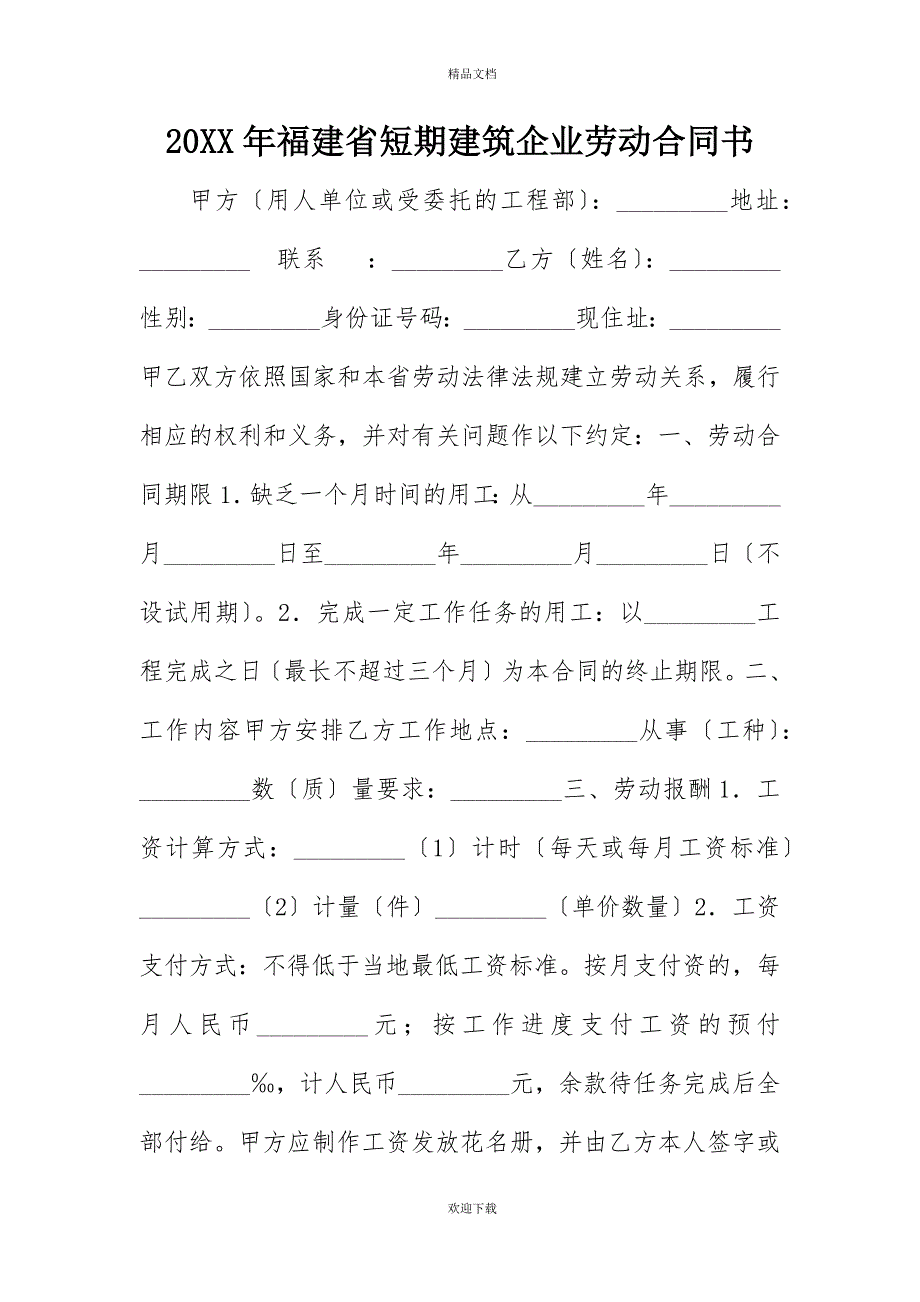 精品文档
20XX年福建省短期建筑企业劳动合同书
甲方〔用人单位或受委托的工程部〕：_________地址：
_________ 联系 ：_________乙方〔姓名〕：_________
性别：_________身份证号码：_________现住址：_________
甲乙双方依照国家和本省劳动法律法规建立劳动关系，履行
相应的权利和义务，并对有关问题作以下约定：一、劳动合
同期限1．缺乏一个月时间的用工：从_________年_________
月_________日至_________年_________月_________日〔不
设试用期〕。2．完成一定工作任务的用工：以_________工
程完成之日〔最长不超过三个月〕为本合同的终止期限。二、
工作内容甲方安排乙方工作地点：_________从事〔工种〕：
_________数〔质〕量要求：_________三、劳动报酬1．工
资计算方式：_________〔1〕计时〔每天或每月工资标准〕
_________〔2〕计量〔件〕_________〔单价数量〕2．工资
支付方式：不得低于当地最低工资标准。按月支付资的，每
月人民币_________元；按工作进度支付工资的预付
_________‰，计人民币_________元，余款待任务完成后全
部付给。甲方应制作工资发放花名册，并由乙方本人签字或
欢迎下载